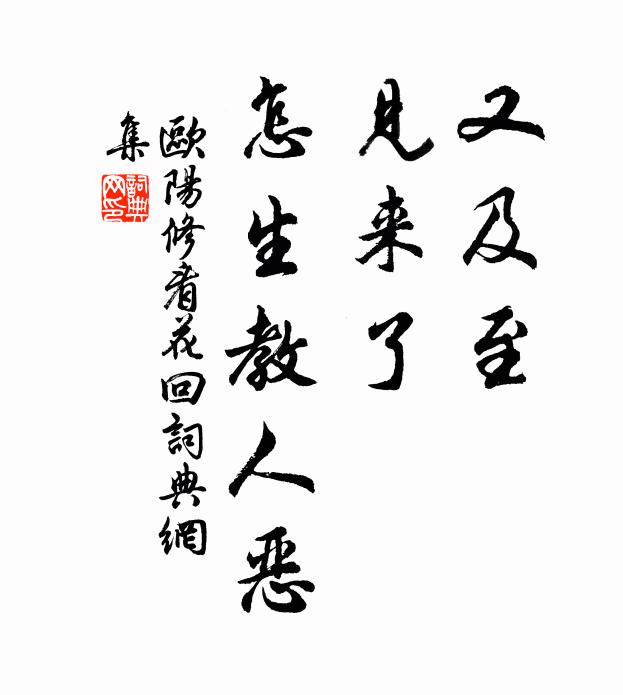 又及至
見来了
怎生教人恶
歐陽修看花回詞典網
集
詞典
网印